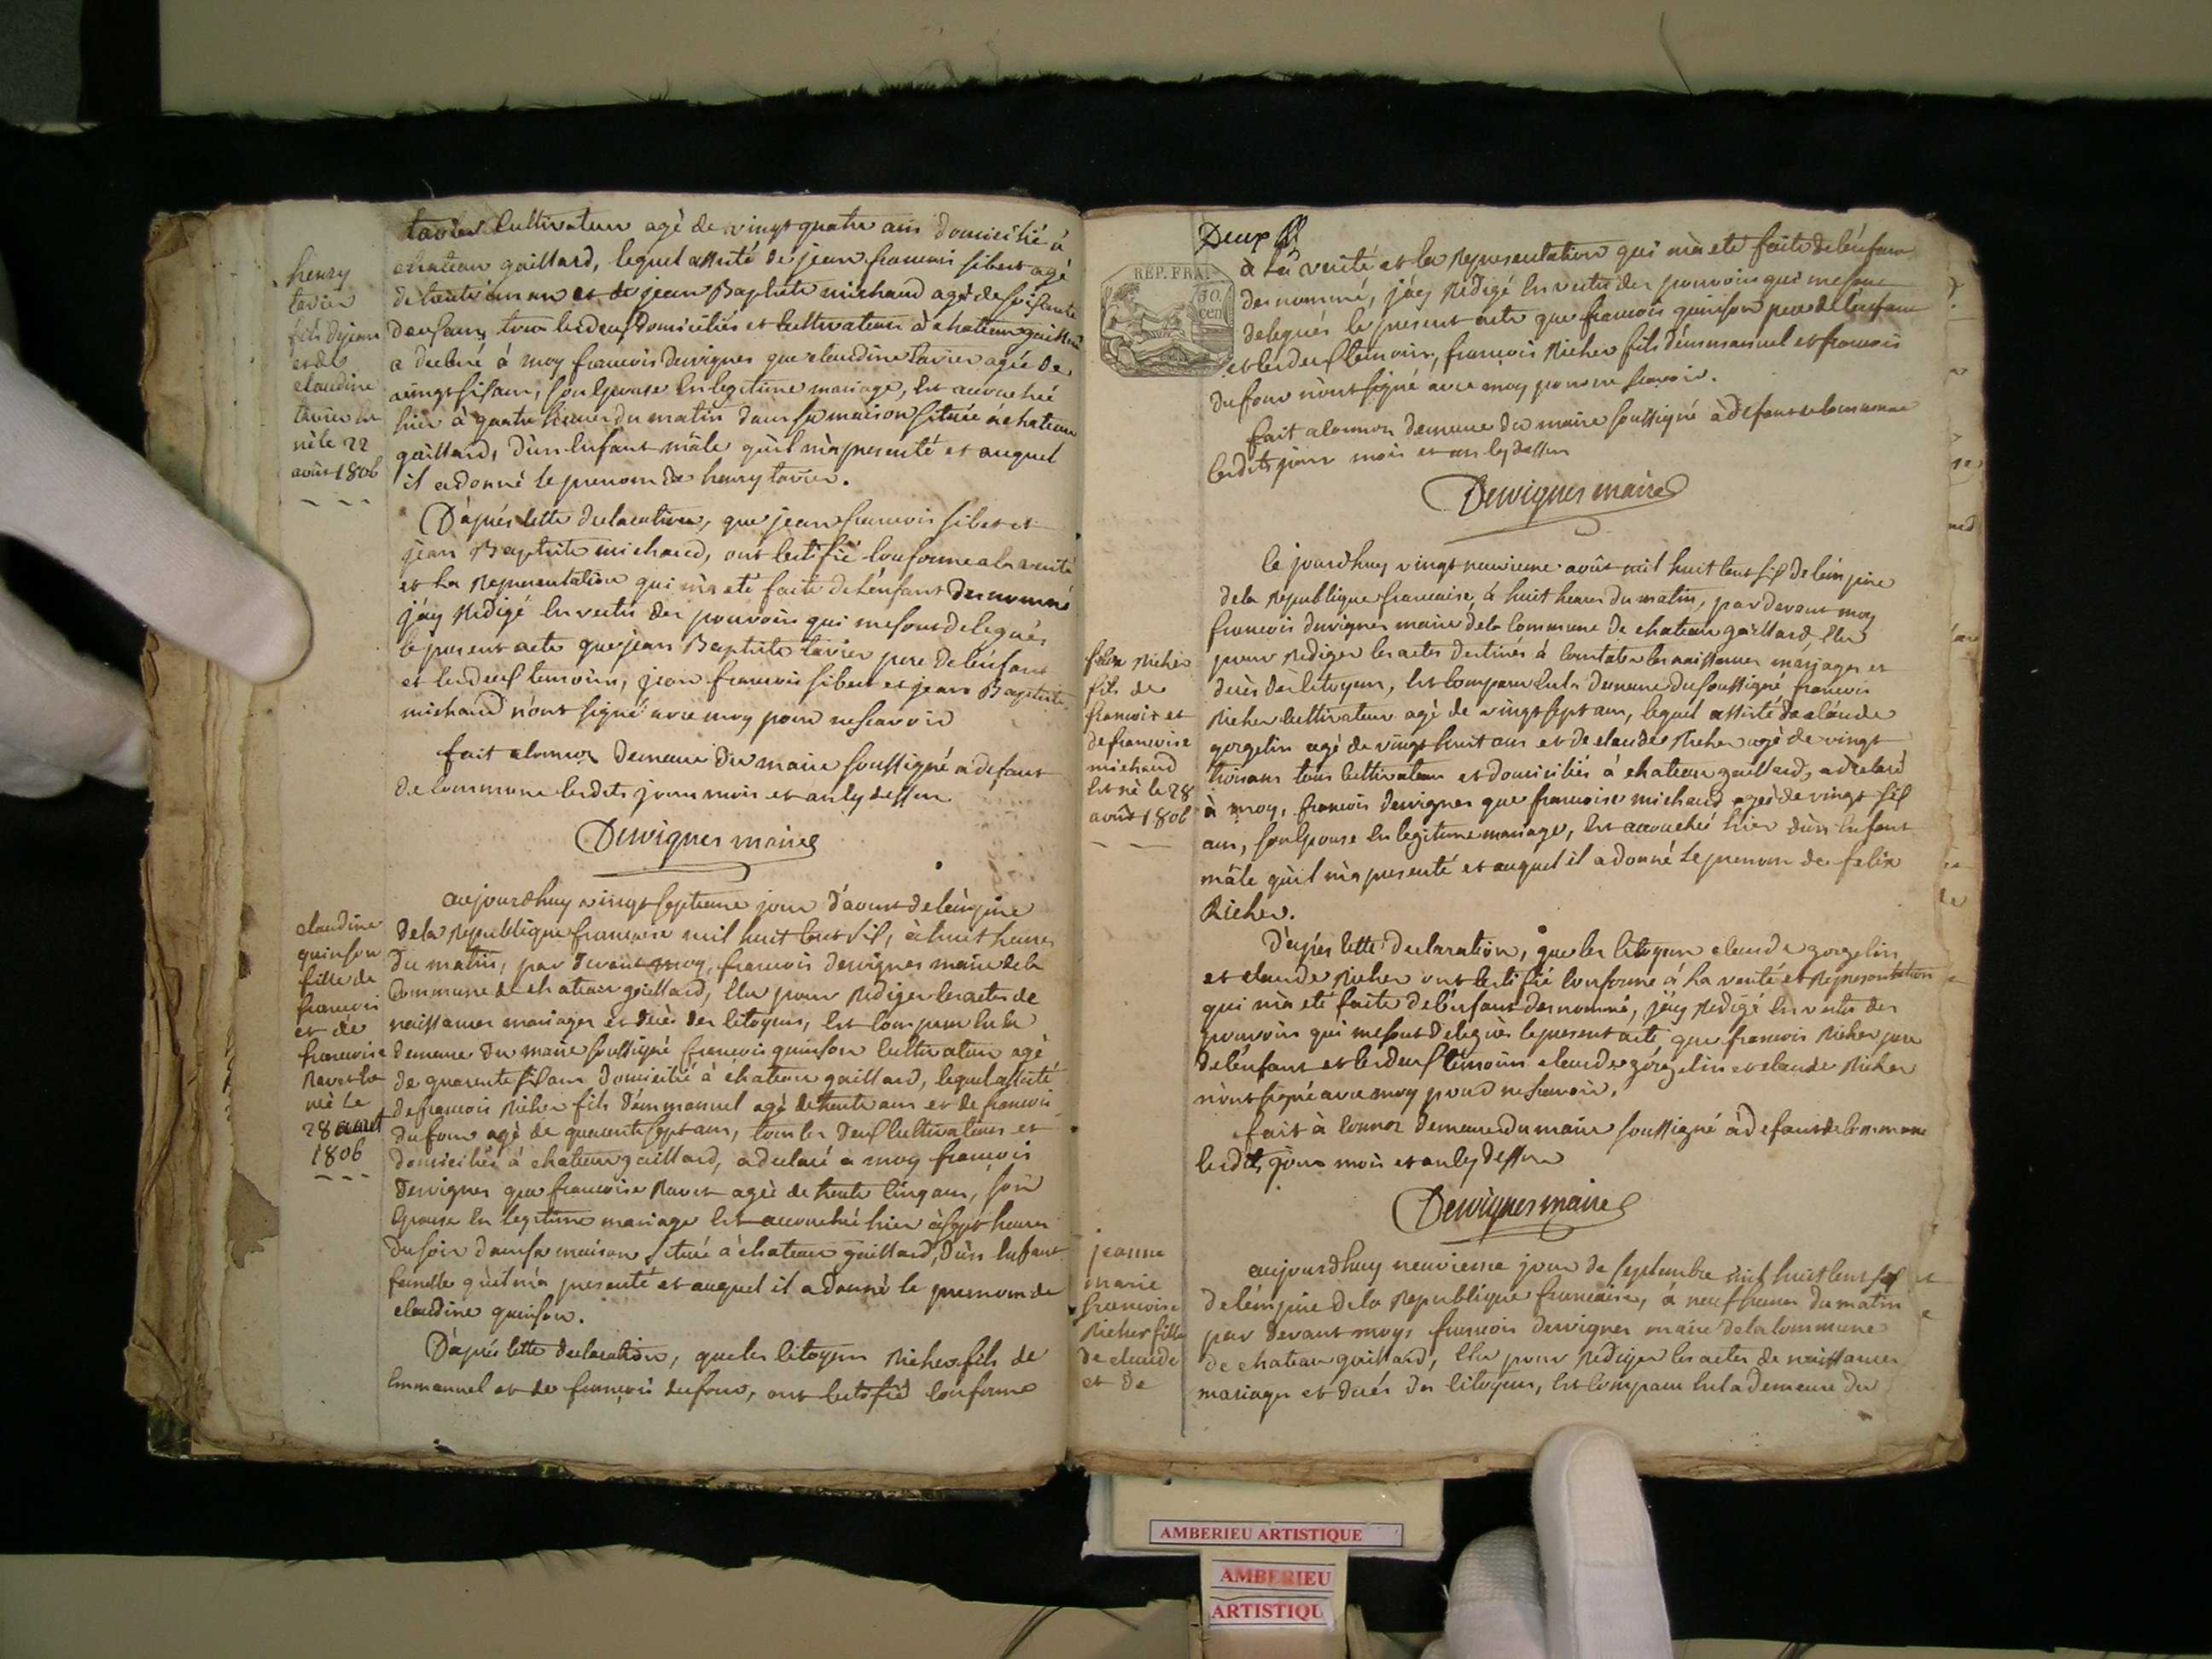 tavier cultivateur agè de vingt quatre ans domicilié à
chateau gaillard, lequel assisté de jean francois sibert agé
de trente un an et de jean Baptiste michaud agé de soisante
deux ans, tous les deux domiciliés et cultivateurs à chateau gaillard
a declaré à moy francois Dervignes que claudine tavier agée de
vingt six ans, son epouse en legitime mariage, est accouchée
hier à quatre heures du matin dans sa maison située à chateau
gaillard, d'un enfant mâle qu'il m'a presenté et auquel
il a donné le prenom de henry tavier.
henry
tavier
fils de jean
et de
claudine
tavier est
nè le 22
août 1806
D'aprés cette declaration, que jean francois sibert et
jean Baptiste michaud, ont certifié conforme a la verité
et la representation qui m'a eté faite de l'enfant denommé
j'ay rédigé en vertu des pouvoirs qui me sont delegués
le present acte que jean Baptiste tavier pere de l'enfant
et les deux temoins, jean francois sibert et jean Baptiste
michaud n'ont signé avec moy pour ne scavoir
fait a demeure du maire soussigné a defaut
de commune lesdits jours mois et an cy dessus
Dervignes maire
aujourdhuy vingt septieme jour d'aoust de l'empire
de la republique francaise mil huit cent six, à huit heures
du matin, par devant moy, francois dervignes maire de la
commune de chateau gaillard, elu pour rediger les actes de
naissances mariages et decès des citoyens, est comparu en la
demeure du maire soussigné francois quinson cultivateur agé
de quarente six ans domicilié à chateau gaillard, lequel assisté
de francois Richer fils d'emmanuel agé de trente ans et de francois
dufour agé de quarente sept ans, tous les deux cultivateurs et
domiciliés à chateau gaillard, a declaré a moy francois
Dervignes que francoise Ravet agée de trente cinq ans, son
epouse en legitime mariage est accouchée hier à sept heures
du soir dans sa maison située à chateau gaillard, d'un enfant
femelle qu'il m'a presenté et auquel il a donné le prenom de
claudine quinson.
claudine
quinson
fille de
francois
et de
francoise
Ravet
nèe Le
28 aout
1806
D'aprés cette declaration, que les citoyens Richer fils de
emmanuel et de francois dufour, ont certifié conforme
Deux
RÉP. FRA.
50
cen
à La verité et la representation qui m'a eté faite de l'enfant
denommé, j'ay rédigé en vertu des pouvoirs qui me sont
delegués le present acte que francois quinson pere de l'enfant
et les deux temoins, francois Richer fils d'emmanuel et francois
dufour n'ont signé avec moy pour ne scavoir.
fait a demeure du maire soussigné à defaut de commune
lesdits jour mois et an cy dessus
Dervignes maire
ce jourdhuy vingt neuvieme août mil huit cent six de l'empire
de la republique francaise, à huit heures du matin, par devant moy
francois dervignes maire de la commune de chateau gaillard, elu
pour rediger les actes destinés à constater les naissances mariages et
decès des citoyens, est comparu en la demeure du soussigné francois
Richer cultivateur agé de vingt sept ans, lequel assisté de claude
gorgelin agé de vingt huit ans et de claude Richer agé de vingt
trois ans tous cultivateurs et domiciliés à chateau gaillard, a declaré
à moy, francois dervignes que francoise michaud agée de vingt six
ans, son epouse en legitime mariage, est accouchée hier d'un enfant
mâle qu'il m'a presenté et auquel il a donné Le prenom de felix
Richer.
felix Richer
fils de
francois et
de francoise
michaud
est nè le 28
août 1806
D'après cette declaration, que les citoyens claude gorgelin
et claude Richer ont certifié conforme à La verité et representation
qui m'a eté faite de l'enfant denommé, j'ay rédigé en vertu des
pouvoirs qui me sont delegués le present acte que francois Richer pere
de l'enfant et les deux temoins claude gorgelin et claude Richer
n'ont signé avec moy pour ne scavoir.
fait à demeure du maire soussigné à defaut de commune
lesdits jours mois et an cy dessus
Dervignes maire
aujourdhuy neuvieme jour de septembre mil huit cent six
de l'empire de la republique francaise, à neuf heures du matin
par devant moys francois dervignes maire de la commune
de chateau gaillard, elu pour rediger les actes de naissances
mariages et decés des citoyens, est comparu en la demeure du
jeanne
marie
francoise
Richer fille
de claude
et de
AMBERIEU ARTISTIQUE
AMBERIEU
ARTISTIQU